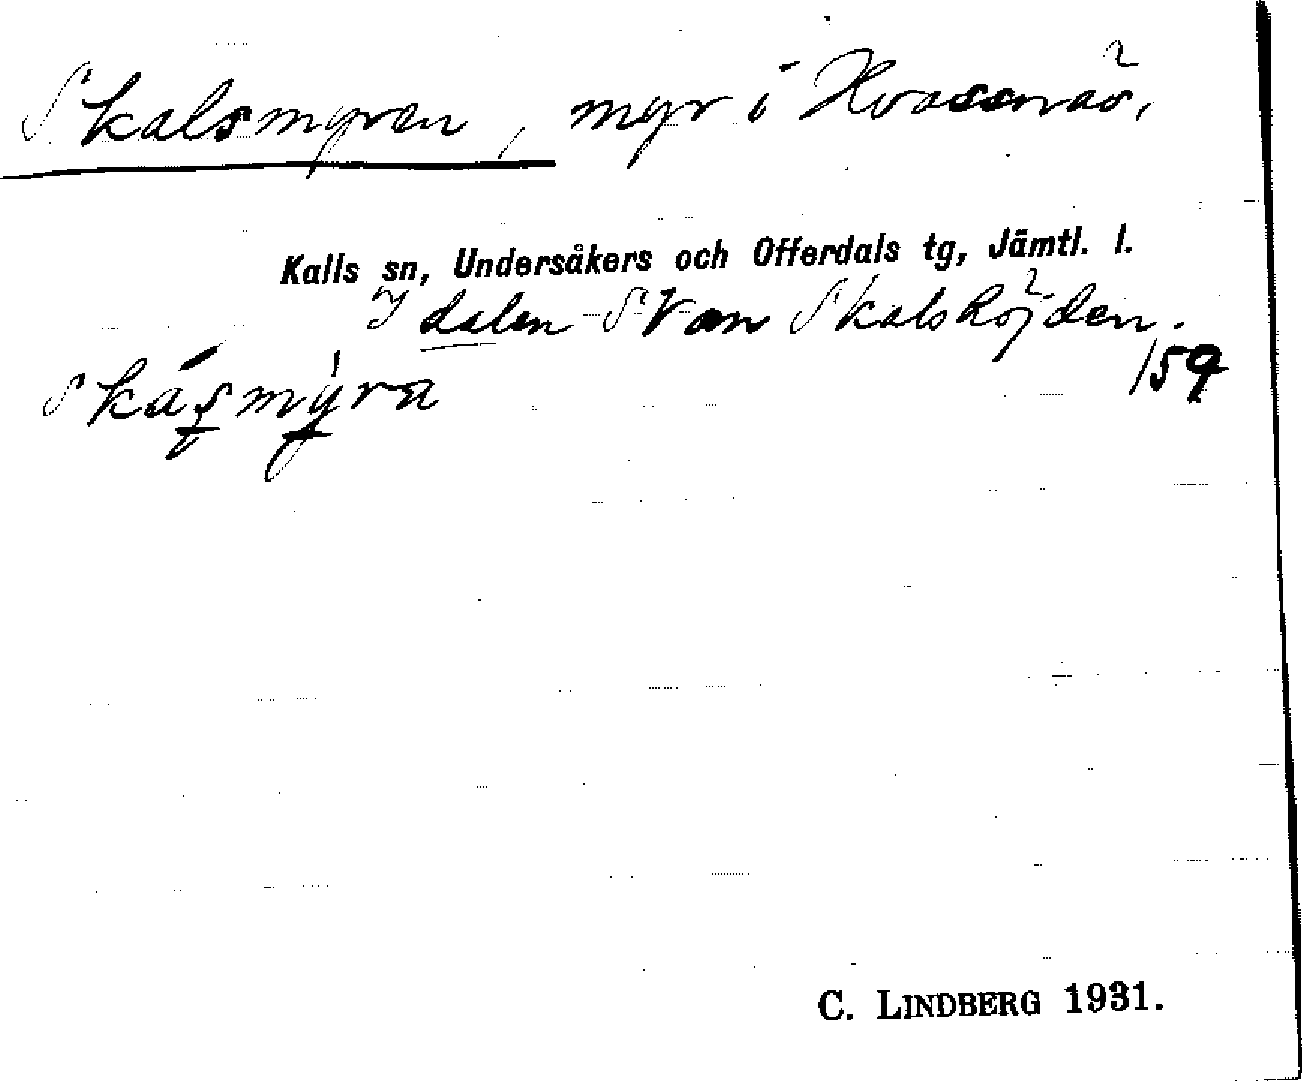 Skalsmyren, myr i Kvassnäs,
Kalls sn, Undersåkers och Offerdals tg, Jämtl. l.
I dalen SV om Skalshöjden.
159
skásmýra
C. LINDBERG 1931.